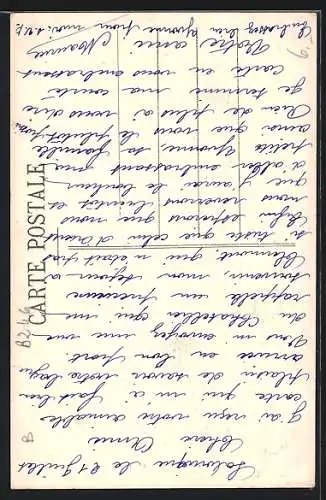 CARTE POSTALE
Salonique le 21 Juillet
Chère Amie
J'ai reçu votre aimable
carte qui m'a fait bien
plaisir de savoir votre bague
arrivée en bon port.
Vous m'envoyez une vue
du qui me
rappelle un précieux
souvenir, mon séjour à
Clermont, qui n'était pas
si triste que celui d'Orient
Enfin espérons que nous
nous reverrons bientôt et
que j'aurai le bonheur
d'aller embrasser ma
petite Yvonne, sa famille
ainsi que vous le plutôt
Rien de plus à vous dire
je termine ma courte
carte en vous embrassant
Votre ami
Maurice
Embrassez bien Yvonne pour moi. s.v.p.
B